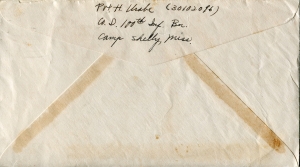 Pvt H Urabe (30102096)
Co. D. 100th Inf. Bn.
Camp Shelby, Miss.